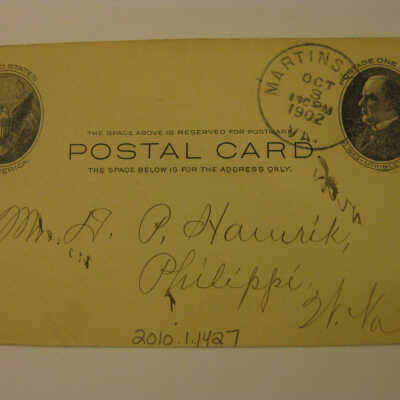 D STATES
MERICA.
MARTINS
OCT
3
1902
VA.
POSTAGE ONE
THE SPACE ABOVE IS RESERVED FOR POSTMARK.
POSTAL CARD
THE SPACE BELOW IS FOR THE ADDRESS ONLY.
Mr. D. P. Hamrik,
Philippi,
W. Va
2010.1.1427